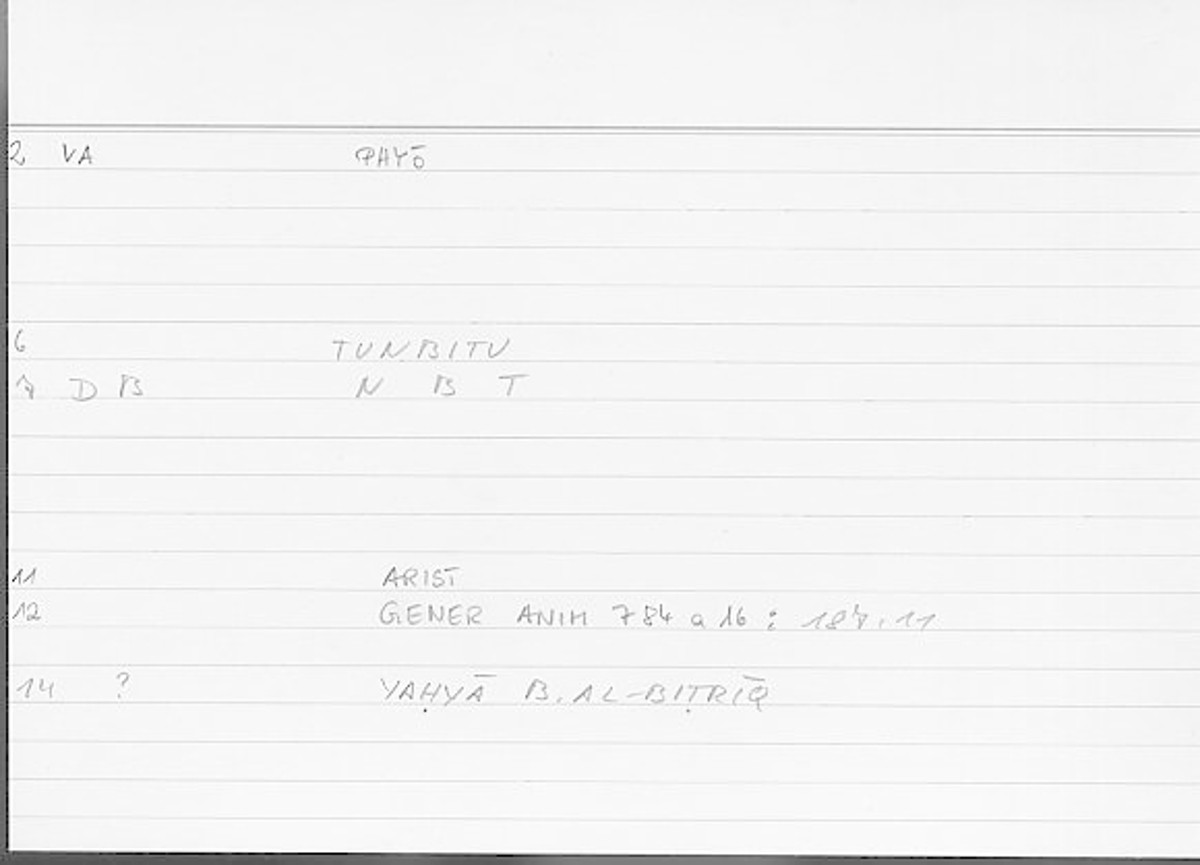 2 VA PHYŌ
6 TUNBITU
7 D B N B T
11 ARIST
12 GENER ANIM 784 a 16 : 187.11
14 ? YAḤYĀ B. AL-BIṬRĪQ